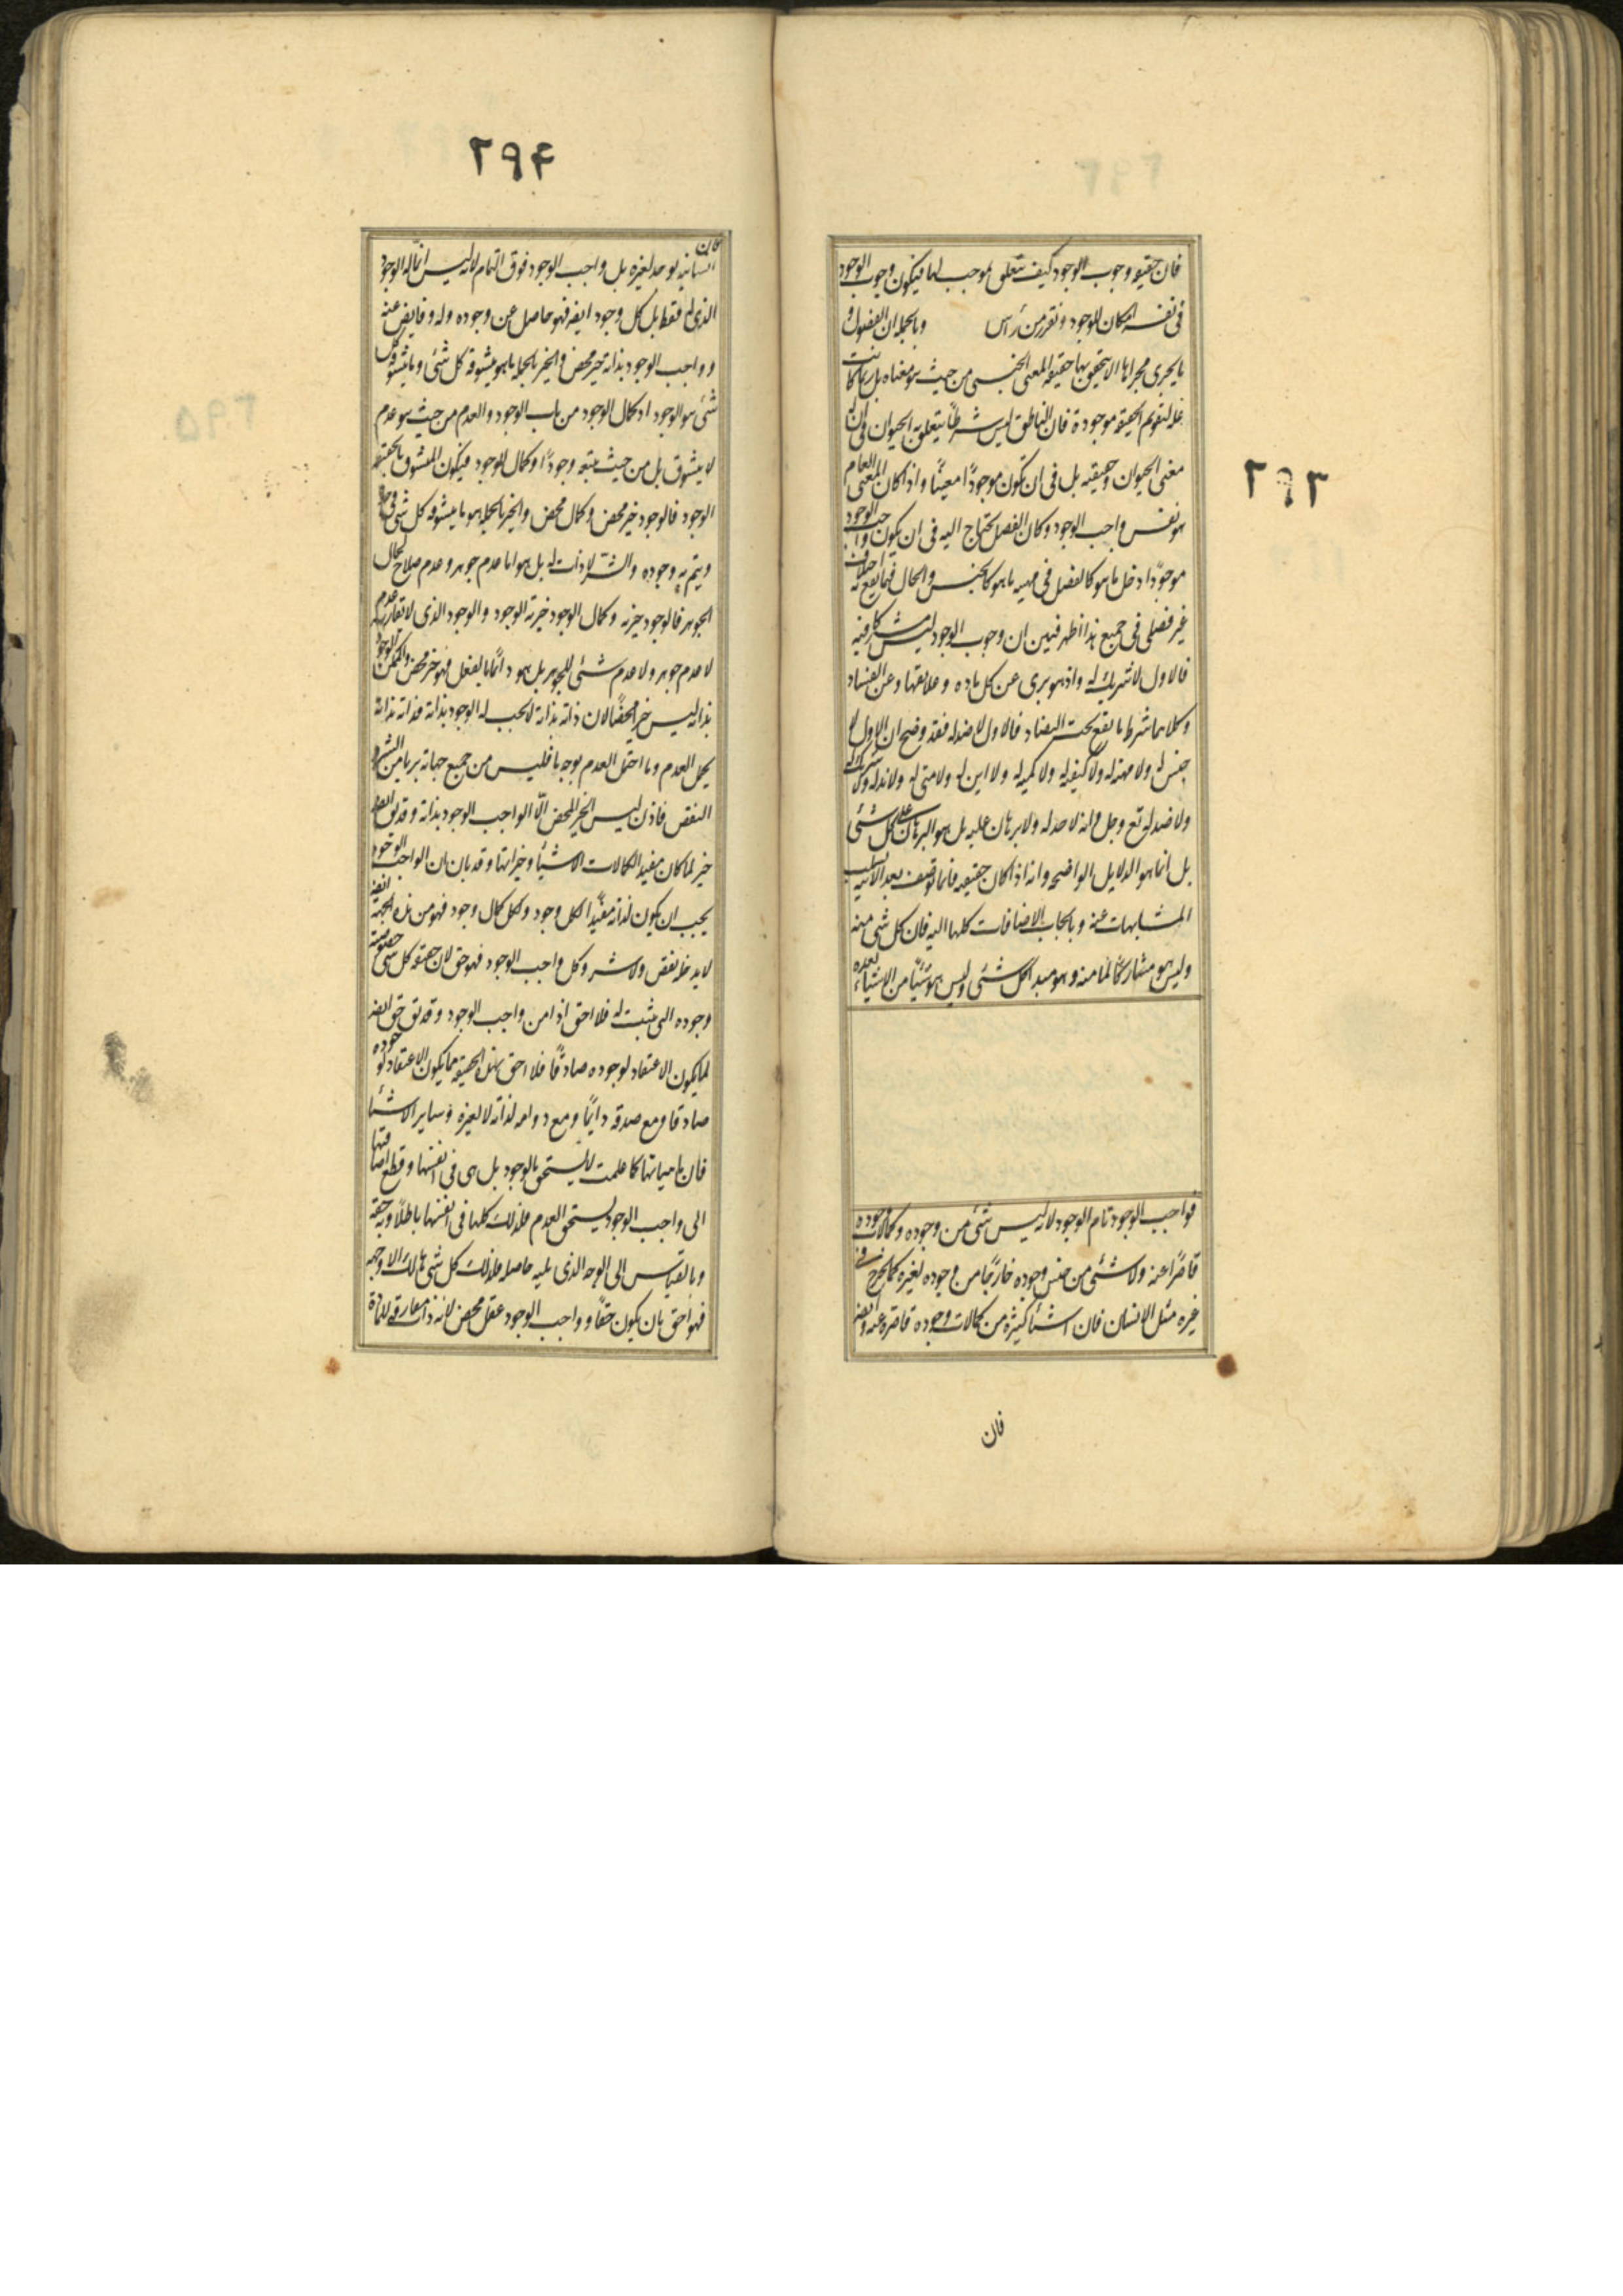 ٢٩٣
فان حقيقه وجوب الوجود كيف تتعلق بموجب لها فيكون وجوب الوجود
فى نفسه امكان الوجود ونقرر من رأس وبالجمله ان الفصول و
ما يجرى مجراها لا يتحقق بها حقيقه المعنى الجنسى من حيث هو معناه بل ربما كانت
عله لتقويم الحقيقه موجودة فان الناطق ليس شرطاً يتعلق به الحيوان فى ان له
معنى الحيوان وحقيقته بل فى ان تكون موجوداً معيناً واذا كان المعنى العام
هو نفس واجب الوجود وكان الفصل يحتاج اليه فى ان يكون واجب الوجود
موجوداً دخل ما هو كالفصل فى مهيه ما هو كالجنس والحال فيما يقع به اختلاف
غير فصلى فى جميع هذا اظهر فبين ان وجوب الوجود ليس مشتركا فيه
فالاول لا شريك له واذ هو برى عن كل ماده وعلايقها وعن الفساد
وكلاهما شرط ما يقع تحت التضاد فالاول لا ضد له فقد وضح ان الاول لا
جنس له ولا مهية له ولا كيفيه له ولا كميه له ولا اين له ولا متى له ولا ند له ولا شريك له
ولا ضد له تع وجل وانه لا حد له ولا برهان عليه بل هو البرهان على كل شئى
بل انما هو الدلايل الواضحه وانه اذا كان حقيقه فانما توصف بعد الانيه بسلب
المشابهات عنه وبايجاب الاضافات كلها اليه فان كل شى منه
وليس هو مشاركاً لما منه وهو مبدا كل شئى وليس هو شيئاً من الاشياء بعده
فواجب الوجود تام الوجود لانه ليس شئى من وجوده وكمالات وجوده
قاصراً عنه ولا شئى من جنس وجوده خارجاً من وجوده لغيره كما يخرج فى
غيره مثل الانسان فان اشياء كثيرة من كمالات وجوده قاصره عنه وايضه
فان
٢٩۴
فان
انسانيته يوجد لغيره بل واجب الوجود فوق التمام لانه ليس انما له الوجود
الذى له فقط بل كل وجود ايضه فهو حاصل عن وجوده وله وفايض عنه
وواجب الوجود بذاته خير محض والخير بالجمله ما هو يتشوقه كل شئى وما يتشوقه كل
شئى هو الوجود او كمال الوجود من باب الوجود والعدم من حيث هو عدم
لا يتشوق بل من حيث يتبعه وجوداً او كمال الوجود فيكون المتشوق بالحقيقه
الوجود فالوجود خير محض وكمال محض والخير بالجمله هو ما يتشوقه كل شى فى حده
ويتم به وجوده والشر لا ذات له بل هو اما عدم جوهر وعدم صلاح لحال
الجوهر فالوجود خيريه وكمال الوجود خيرية الوجود والوجود الذى لا يقارنه عدم
لا عدم جوهر ولا عدم شئى للجوهر بل هو دائماً بالفعل فهو خير محض والممكن الوجود
بذاته ليس خيراً محضاً لان ذاته بذاته لا يجب له الوجود بذاته فذاته بذاته
يحتمل العدم وما احتمل العدم بوجه ما فليس من جميع جهاته بريا من الشر و
النقص فاذن ليس الخير المحض الا الواجب الوجود بذاته وقد يق ايضه
خير لما كان مفيد الكمالات الاشيأ وخيراتها وقد بان ان الواجب الوجود
يجب ان يكون لذاته مفيداً لكل وجود ولكل كمال وجود فهو من هذه الجهة ايضه
لا يدخله نقص ولا شر وكل واجب الوجود فهو حق لان حقيقه كل شى خصوصيه
وجوده التى يثبت له فلا احق اذا من واجب الوجود وقد يق حق ايضه
لما يكون الاعتقاد لوجوده صادقاً فلا احق بهذه الحقيقه مما يكون الاعتقاد لوجوده
صادقا ومع صدقه دايماً ومع دوامه لذاته لا لغيره وساير الاشيأ
فان ماهياتها كما علمت لا يستحق الوجود بل هى فى انفسها وقطع اضافتها
الى واجب الوجود يستحق العدم فلذلك كلها فى انفسها باطلة وبه حقه
وبالقياس الى الوجه الذى يليه حاصله فلذلك كل شى هالك الا وجهه
فهو احق بان يكون حقاً وواجب الوجود عقل محض لانه ذات مفارقه للمادة